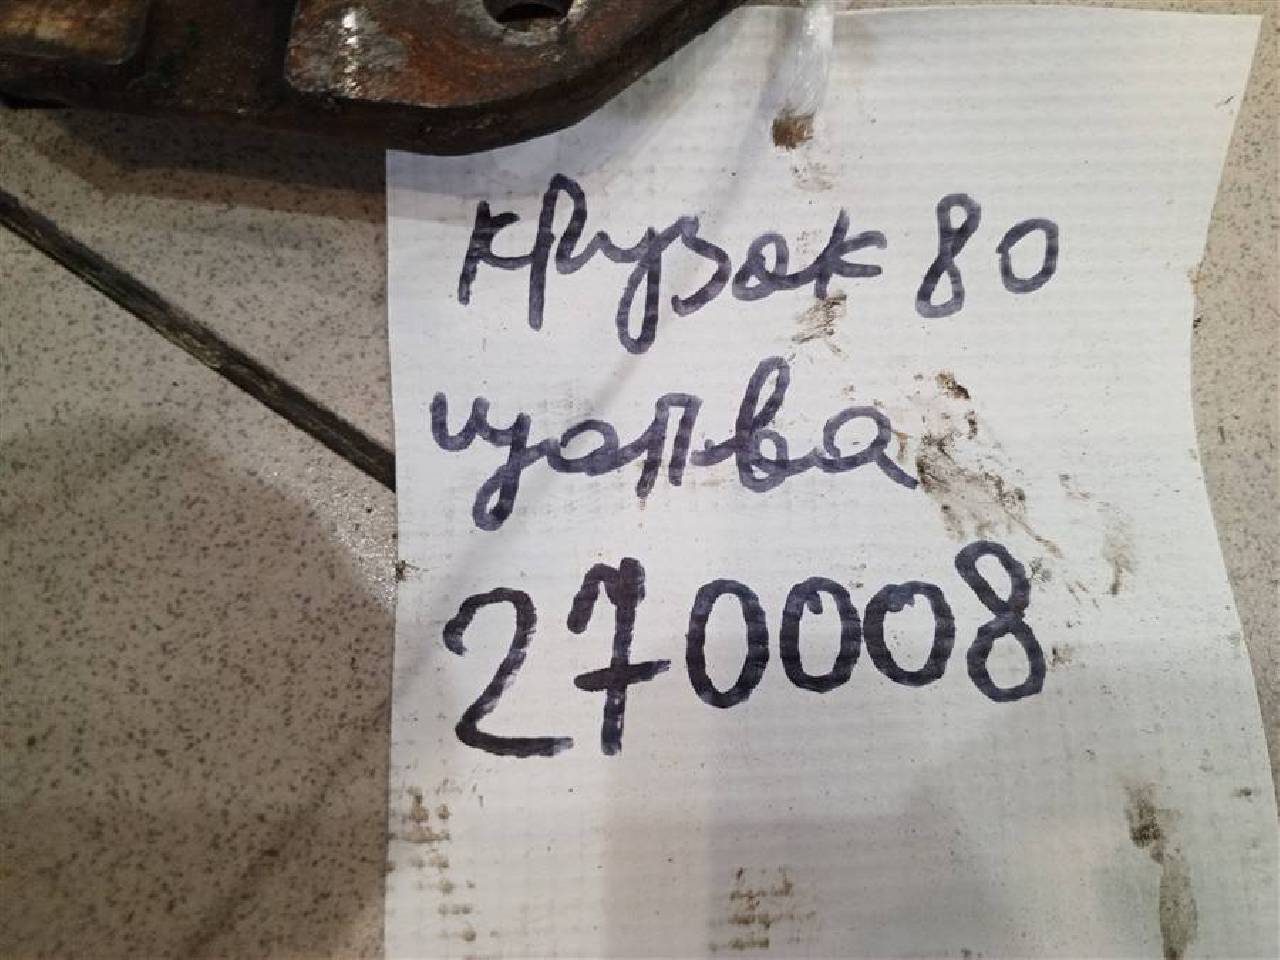 крузак 80
цапва
270008